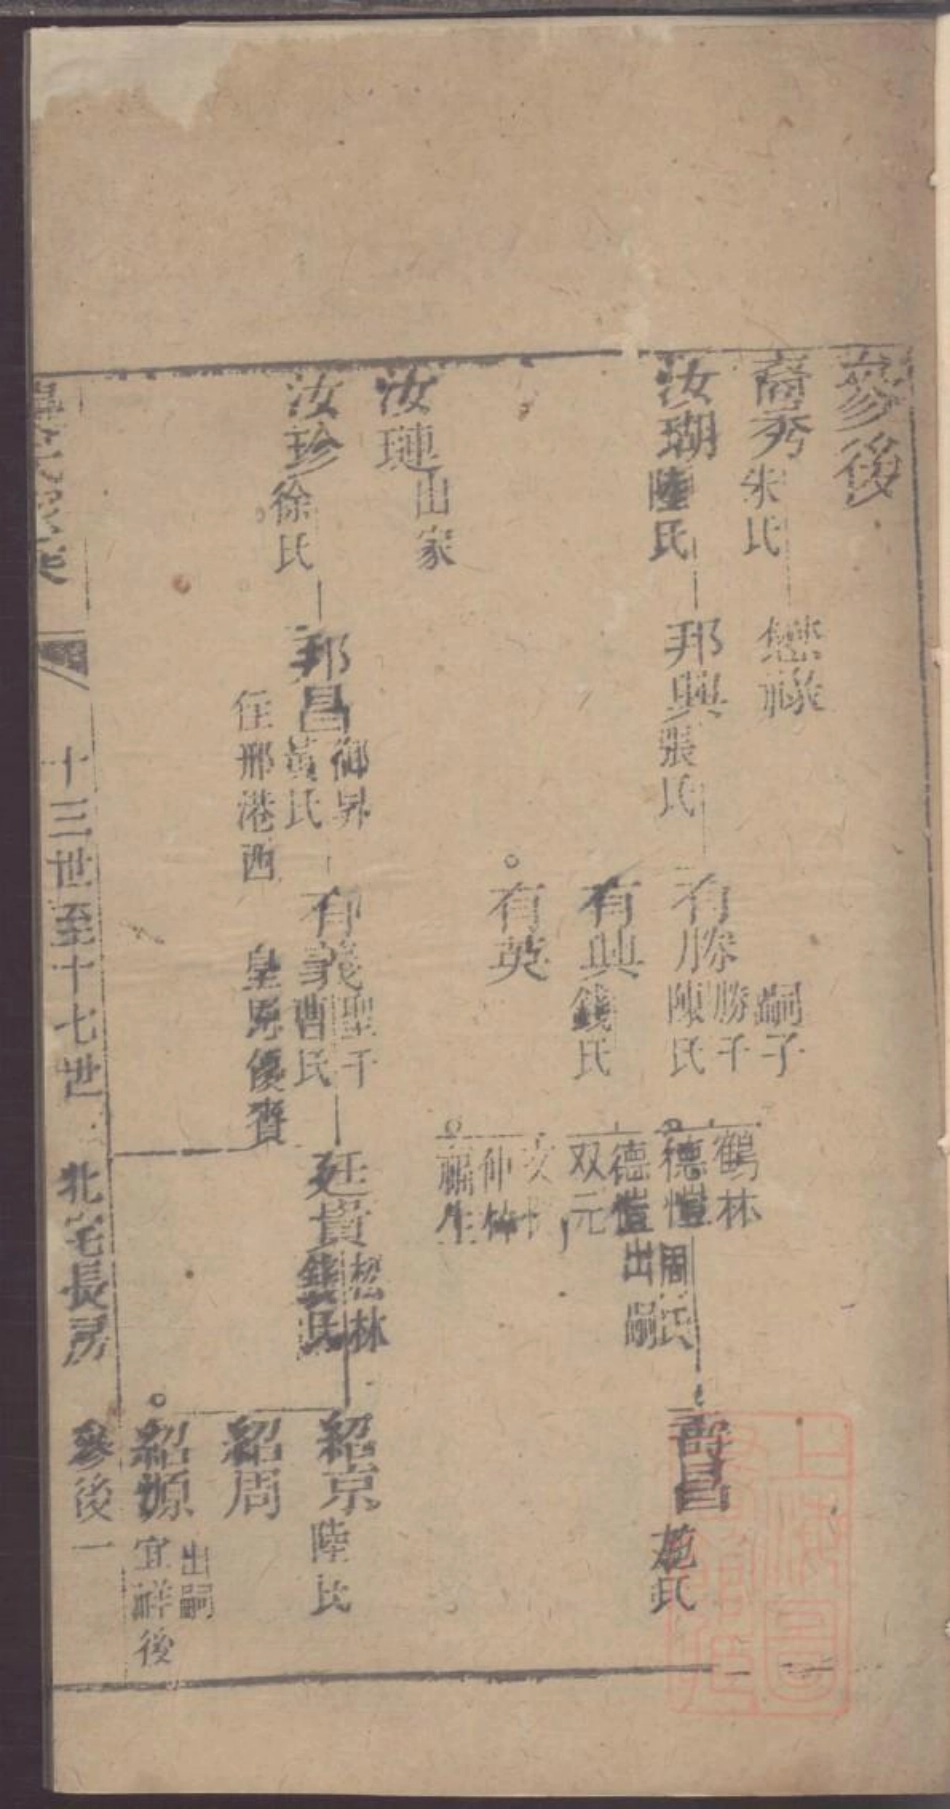 參後
裔秀 朱氏
懋祿
汝瑚 陸氏
邦興 張氏
有勝 勝千 陳氏 嗣子
有興 錢氏
有英
鶴林
德愷 周氏
德愷 出嗣
双元
仲
福生
壽昌 施氏
汝璉 出家
汝珍 徐氏
邦昌 御昇 黃氏 住邢港西
有義 聖千 曹氏 皇恩優賚
廷貴 松林 錢氏
紹京 陸氏
紹周
紹源 出嗣 宜祥後
氏
十三世至十七世 北宅長房 參後一
上海圖